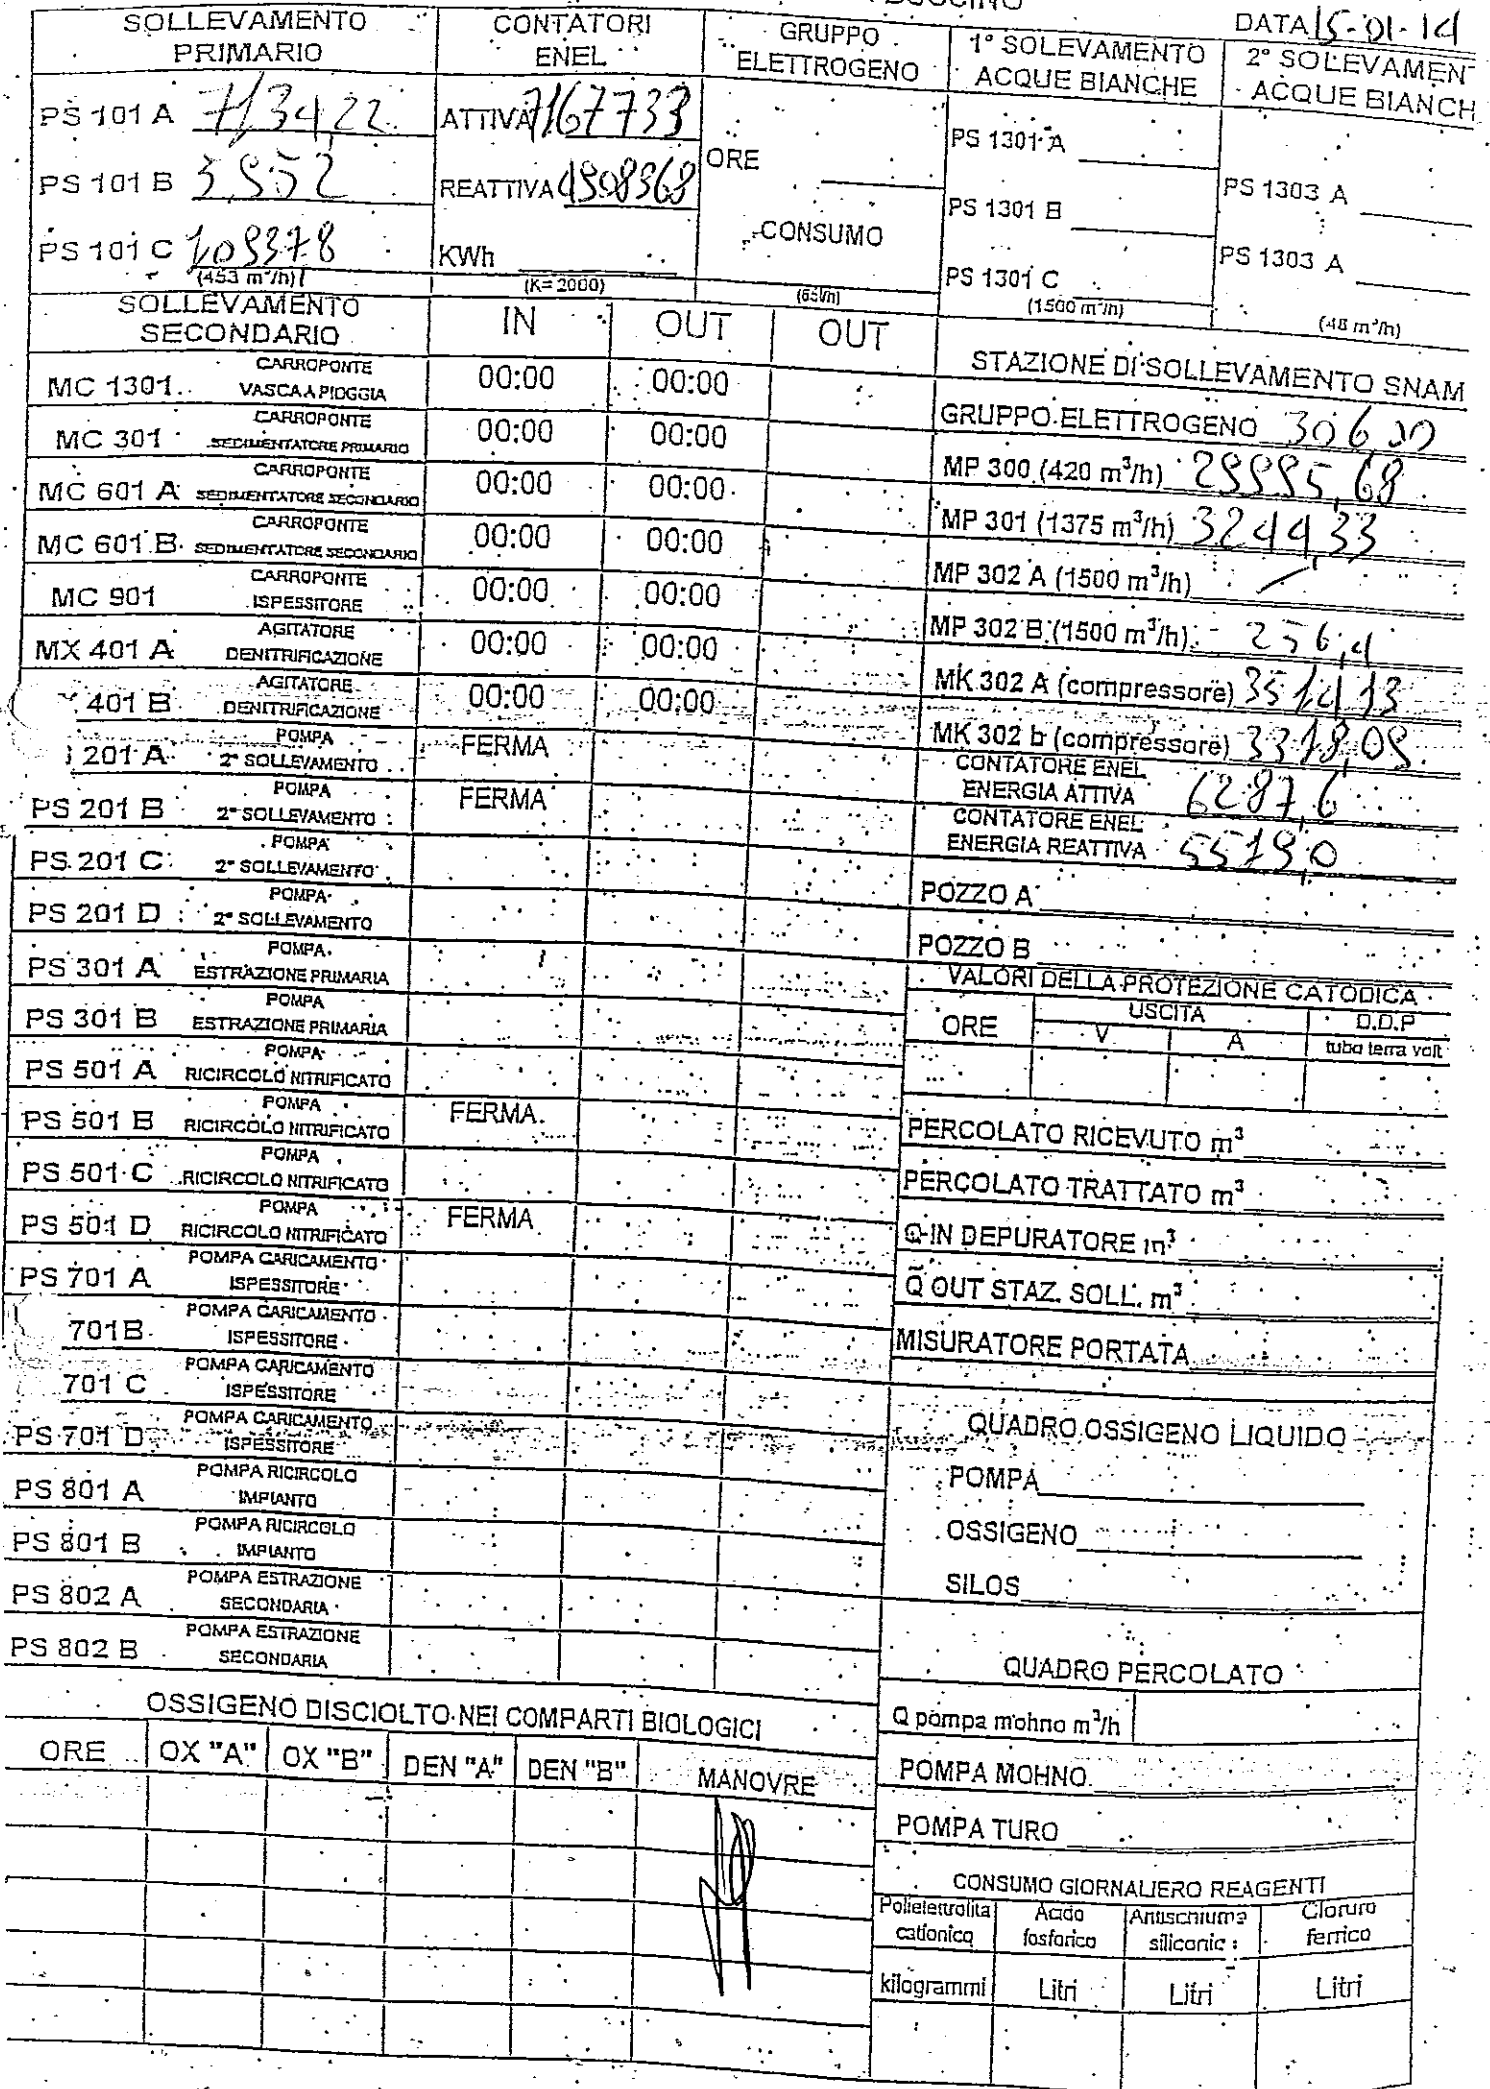 DATA 15-01-14
SOLLEVAMENTO PRIMARIO
PS 101 A 713422
PS 101 B 3,952
PS 101 C 109378
(453 m³/h)
CONTATORI ENEL
ATTIVA 7167733
REATTIVA 4908368
KWh
(K= 2000)
GRUPPO ELETTROGENO
ORE
CONSUMO
(65l/h)
1° SOLEVAMENTO ACQUE BIANCHE
PS 1301 A
PS 1301 B
PS 1301 C
(1500 m³/h)
2° SOLEVAMEN
ACQUE BIANCH
PS 1303 A
PS 1303 A
(48 m³/h)
SOLLEVAMENTO SECONDARIO IN OUT OUT
MC 1301 CARROPONTE VASCA A PIOGGIA 00:00 00:00
MC 301 CARROPONTE SEDIMENTATORE PRIMARIO 00:00 00:00
MC 601 A CARROPONTE SEDIMENTATORE SECONDARIO 00:00 00:00
MC 601 B CARROPONTE SEDIMENTATORE SECONDARIO 00:00 00:00
MC 901 CARROPONTE ISPESSITORE 00:00 00:00
MX 401 A AGITATORE DENITRIFICAZIONE 00:00 00:00
401 B AGITATORE DENITRIFICAZIONE 00:00 00:00
201 A POMPA 2° SOLLEVAMENTO FERMA
PS 201 B POMPA 2° SOLLEVAMENTO FERMA
PS 201 C POMPA 2° SOLLEVAMENTO
PS 201 D POMPA 2° SOLLEVAMENTO
PS 301 A POMPA ESTRAZIONE PRIMARIA
PS 301 B POMPA ESTRAZIONE PRIMARIA
PS 501 A POMPA RICIRCOLO NITRIFICATO
PS 501 B POMPA RICIRCOLO NITRIFICATO FERMA
PS 501 C POMPA RICIRCOLO NITRIFICATO
PS 501 D POMPA RICIRCOLO NITRIFICATO FERMA
PS 701 A POMPA CARICAMENTO ISPESSITORE
701B POMPA CARICAMENTO ISPESSITORE
701 C POMPA CARICAMENTO ISPESSITORE
PS 701 D POMPA CARICAMENTO ISPESSITORE
PS 801 A POMPA RICIRCOLO IMPIANTO
PS 801 B POMPA RICIRCOLO IMPIANTO
PS 802 A POMPA ESTRAZIONE SECONDARIA
PS 802 B POMPA ESTRAZIONE SECONDARIA
OSSIGENO DISCIOLTO NEI COMPARTI BIOLOGICI
ORE OX "A" OX "B" DEN "A" DEN "B" MANOVRE
STAZIONE DI SOLLEVAMENTO SNAM
GRUPPO ELETTROGENO
MP 300 (420 m³/h) 29995,68
MP 301 (1375 m³/h) 3244,33
MP 302 A (1500 m³/h) /
MP 302 B (1500 m³/h) 256,4
MK 302 A (compressore) 3514,13
MK 302 b (compressore) 3318,09
CONTATORE ENEL
ENERGIA ATTIVA 6287,6
CONTATORE ENEL
ENERGIA REATTIVA 5519,0
POZZO A
POZZO B
VALORI DELLA PROTEZIONE CATODICA
ORE USCITA D.D.P
V A tubo terra volt
PERCOLATO RICEVUTO m³
PERCOLATO TRATTATO m³
Q IN DEPURATORE m³
Q OUT STAZ. SOLL. m³
MISURATORE PORTATA
QUADRO OSSIGENO LIQUIDO
POMPA
OSSIGENO
SILOS
QUADRO PERCOLATO
Q pompa mohno m³/h
POMPA MOHNO
POMPA TURO
CONSUMO GIORNALIERO REAGENTI
Polielettrolita cationico Acido fosforico Antischiuma siliconic Cloruro ferrico
kilogrammi Litri Litri Litri